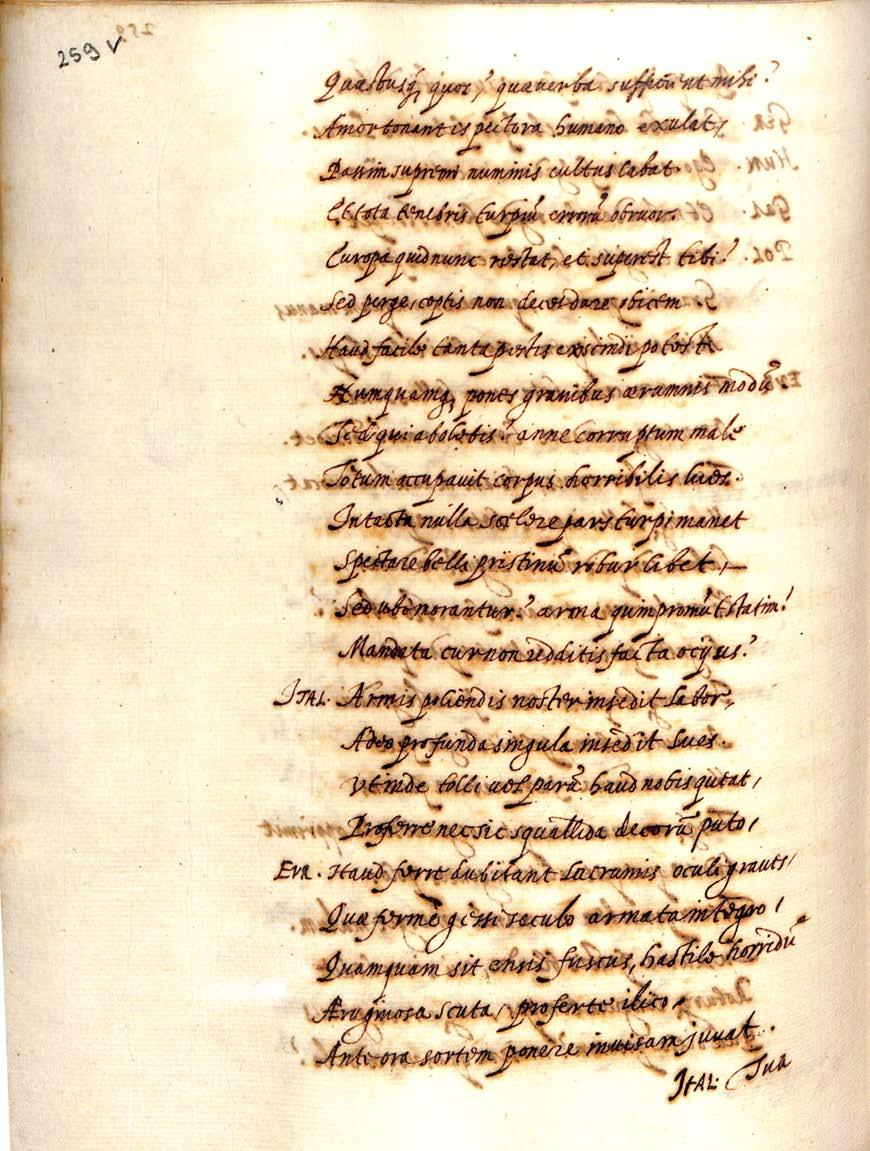 259 v
Quæstusq, quos? quæ verba sufficiũt mihi?
Amor tonantis pectora humano exulat,
Passim supremi numinis cultus labat.
Et tota tenebris turpiũ errorũ obruor.
Europa quid nunc restat, et superest tibi?
Sed perge, cœptis non decet dare obicem
Haud facile tanta pestis exscindi potest
Numquamq, pones gravibus ærumnis modũ?
Sed qui abolebis? anne corruptum male
Totum occupavit corpus horribilis lues.
Intacta nulla scelere pars turpi manet
Spectare belli pristinũ robur libet,
Sed ubi morantur? arma quin promũt statim?
Mandata cur non redditis facta ocijus?
ITAL. Armis poliendis noster insedit labor,
Adeo profunda singula insedit lues.
Vt inde tolli vel parũ haud nobis queat,
Proferre nec sic squallida decorũ puto,
EVR. Haud ferre dubitant lacrumis oculi graves,
Quæ ferme gessi seculo armata integro,
Quamquam sit ensis fuscus, hastile horridũ
Æruginosa scuta, proferte ilico.
Ante ora sortem ponere invisam juvat.
ITAL. Tua